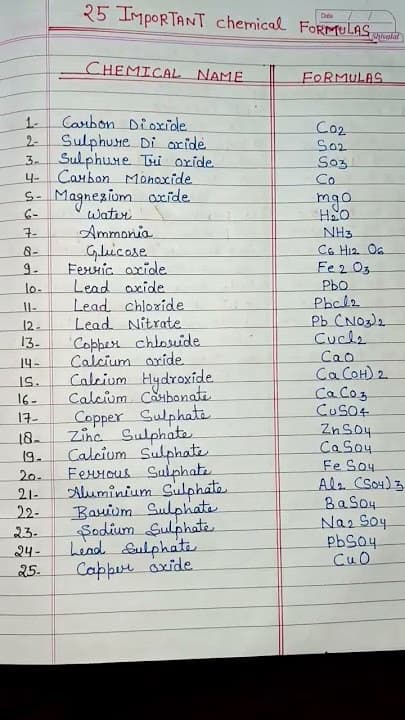 25 IMPORTANT chemical FORMULAS
Date / /
Shivalal
CHEMICAL NAME FORMULAS
1- Carbon Dioxide CO2
2- Sulphure Di oxide SO2
3- Sulphure Tri oxide SO3
4- Carbon Monoxide Co
5- Magnesium oxide mgO
6- Water H2O
7- Ammonia NH3
8- Glucose C6 H12 O6
9- Ferric oxide Fe2 O3
10- Lead oxide PbO
11- Lead chloride Pbcl2
12- Lead Nitrate Pb (NO3)2
13- Copper chloride Cucl2
14- Calcium oxide CaO
15. Calcium Hydroxide Ca(OH)2
16- Calcium Carbonate CaCo3
17- Copper Sulphate CuSO4
18- Zinc Sulphate ZnSO4
19- Calcium Sulphate CaSO4
20- Ferrous Sulphate Fe SO4
21- Aluminium Sulphate Al2 (SO4)3
22- Barium Sulphate BaSO4
23- Sodium Sulphate Na2 SO4
24- Lead Sulphate PbSO4
25- Capper oxide CuO